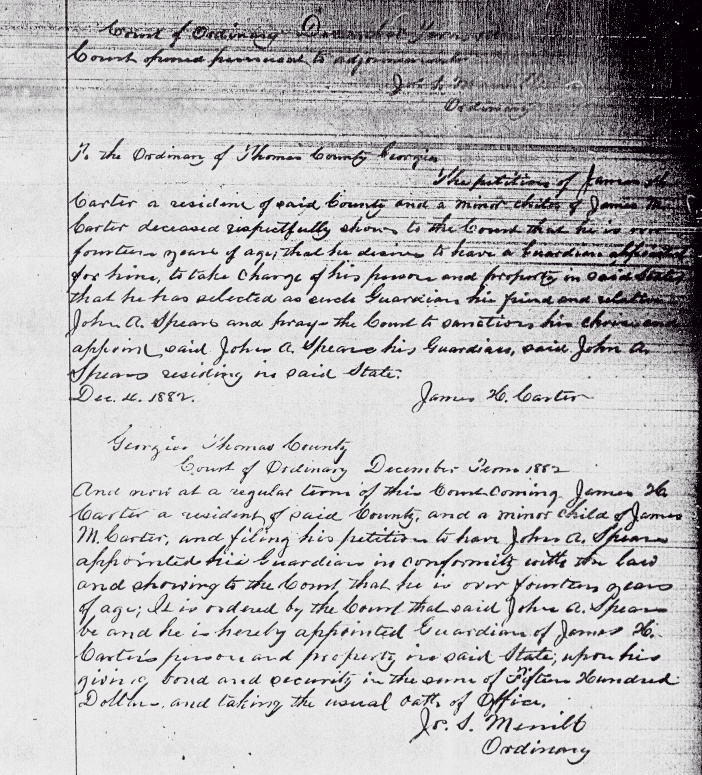 Court of Ordinary December Term
Court opened pursuant to adjournment
Ordinary
To the Ordinary of Thomas County Georgia
The petition of James H.
Carter a resident of said County and a minor child of James M.
Carter deceased respectfully shows to the Court that he is over
fourteen years of age; that he desires to have a Guardian appointed
for him, to take charge of his person and property in said State
that he has selected as such Guardian his friend and relative
John A. Spears and prays the Court to sanction his choice and
appoint said John A. Spears his Guardian, said John A.
Spears residing in said State.
Dec. 4. 1882. James H. Carter
Georgia Thomas County
Court of Ordinary December Term 1882
And now at a regular term of this Court coming James H.
Carter a resident of said County, and a minor child of James
M. Carter, and filing his petition to have John A. Spears
appointed his Guardian in conformity with the law
and showing to the Court that he is over fourteen years
of age; It is ordered by the Court that said John A. Spears
be and he is hereby appointed Guardian of James H.
Carter's person and property in said State, upon his
giving bond and security in the sum of Fifteen Hundred
Dollars, and taking the usual oath of Office.
Jos. S. Merrill
Ordinary